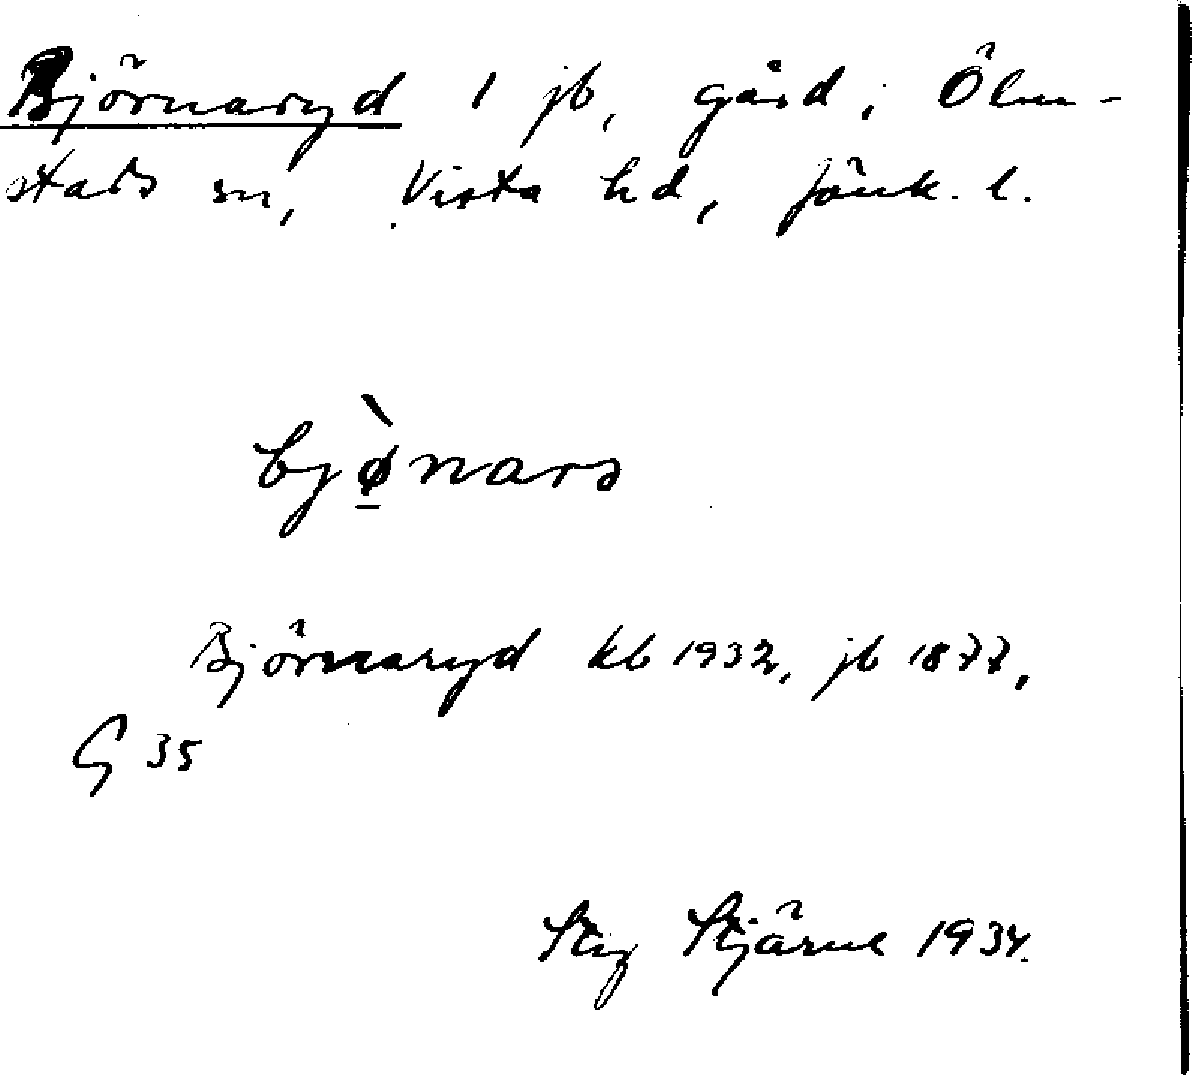 Björnaryd 1 jb, gård i Ölm-
stads sn, Vista hd, Jönk. l.
bjø̲̀nars
Björnaryd kb 1932, jb 1877,
G 35
Stig Stjärne 1934.